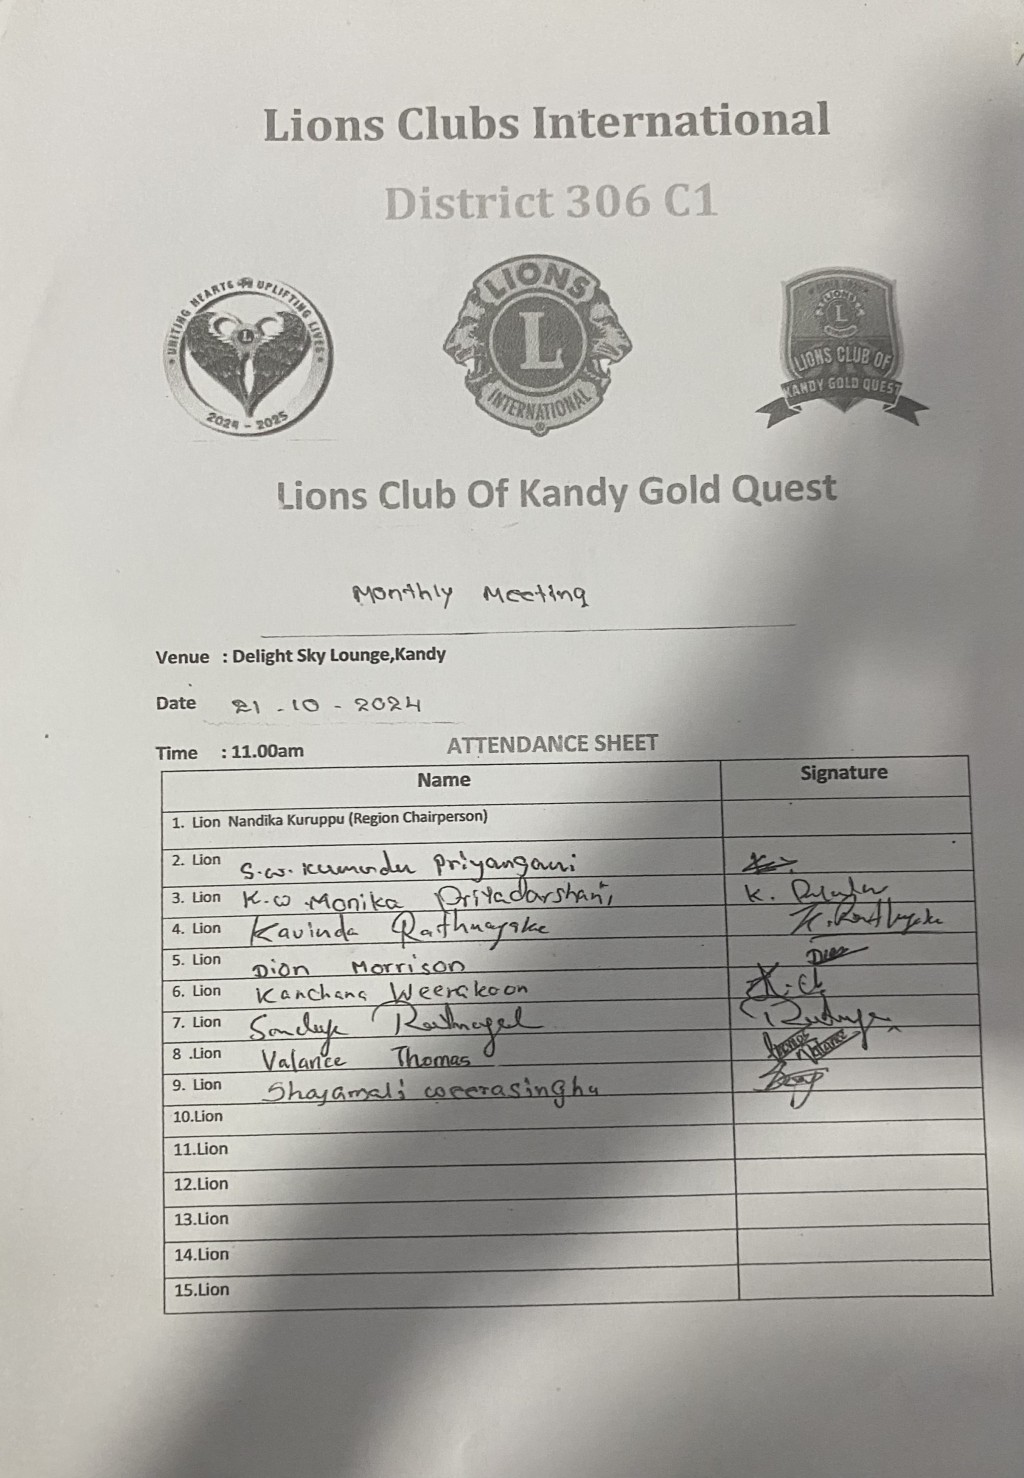 Lions Clubs International
District 306 C1
UNITING HEARTS UPLIFTING LIVES
2024 - 2025
LIONS
L
INTERNATIONAL
®
LIONS
L
LIONS CLUB OF
KANDY GOLD QUEST
Lions Club Of Kandy Gold Quest
Monthly Meeting
Venue : Delight Sky Lounge,Kandy
Date 21 - 10 - 2024
Time : 11.00am
ATTENDANCE SHEET
Name Signature
1. Lion Nandika Kuruppu (Region Chairperson)
2. Lion S.W. Priyangani
3. Lion K.W. Monika Priyadarshani K.
4. Lion Kavinda Rathnayake K. Rathnayake
5. Lion Dion Morrison Dion
6. Lion Kanchana Weerakoon
7. Lion
8 .Lion Valance Thomas Thomas Valance
9. Lion Shayamali weerasingha
10.Lion
11.Lion
12.Lion
13.Lion
14.Lion
15.Lion